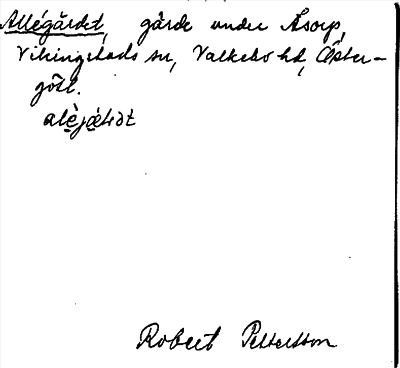 Allégärdet, gärde under Åsorp,
Vikingstads sn, Valkebo hd, Öster-
götl.
Robert Pettersson